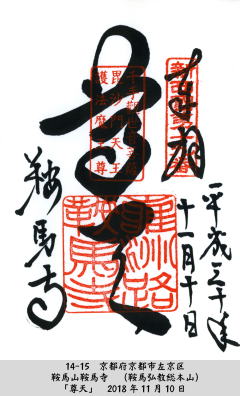 奉拝
平成三十年
十一月十日
千手観世音菩薩
毘沙門天王
護法魔王尊
尊天
鞍馬寺
14-15 京都府京都市左京区
鞍馬山鞍馬寺 (鞍馬弘教総本山)
「尊天」 2018年11月10日